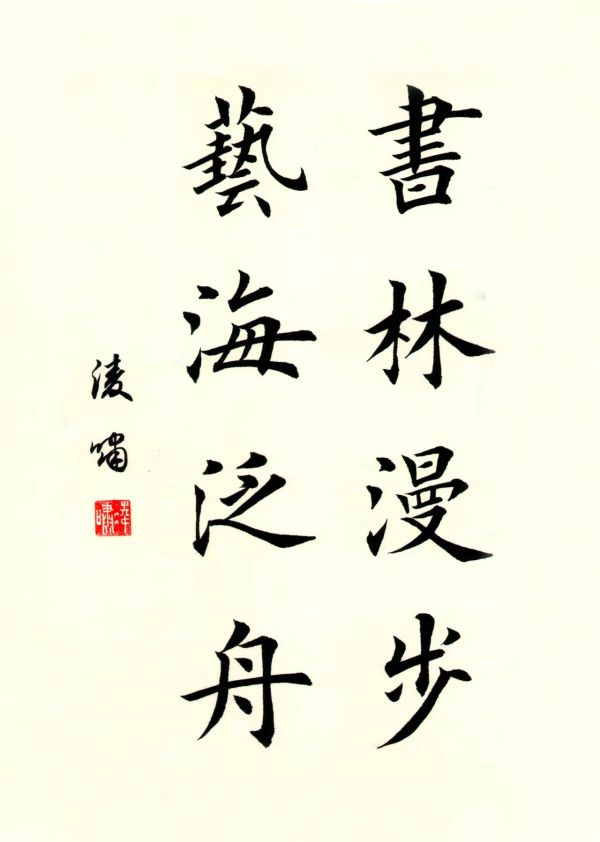 書林漫步
藝海泛舟
淩嘯